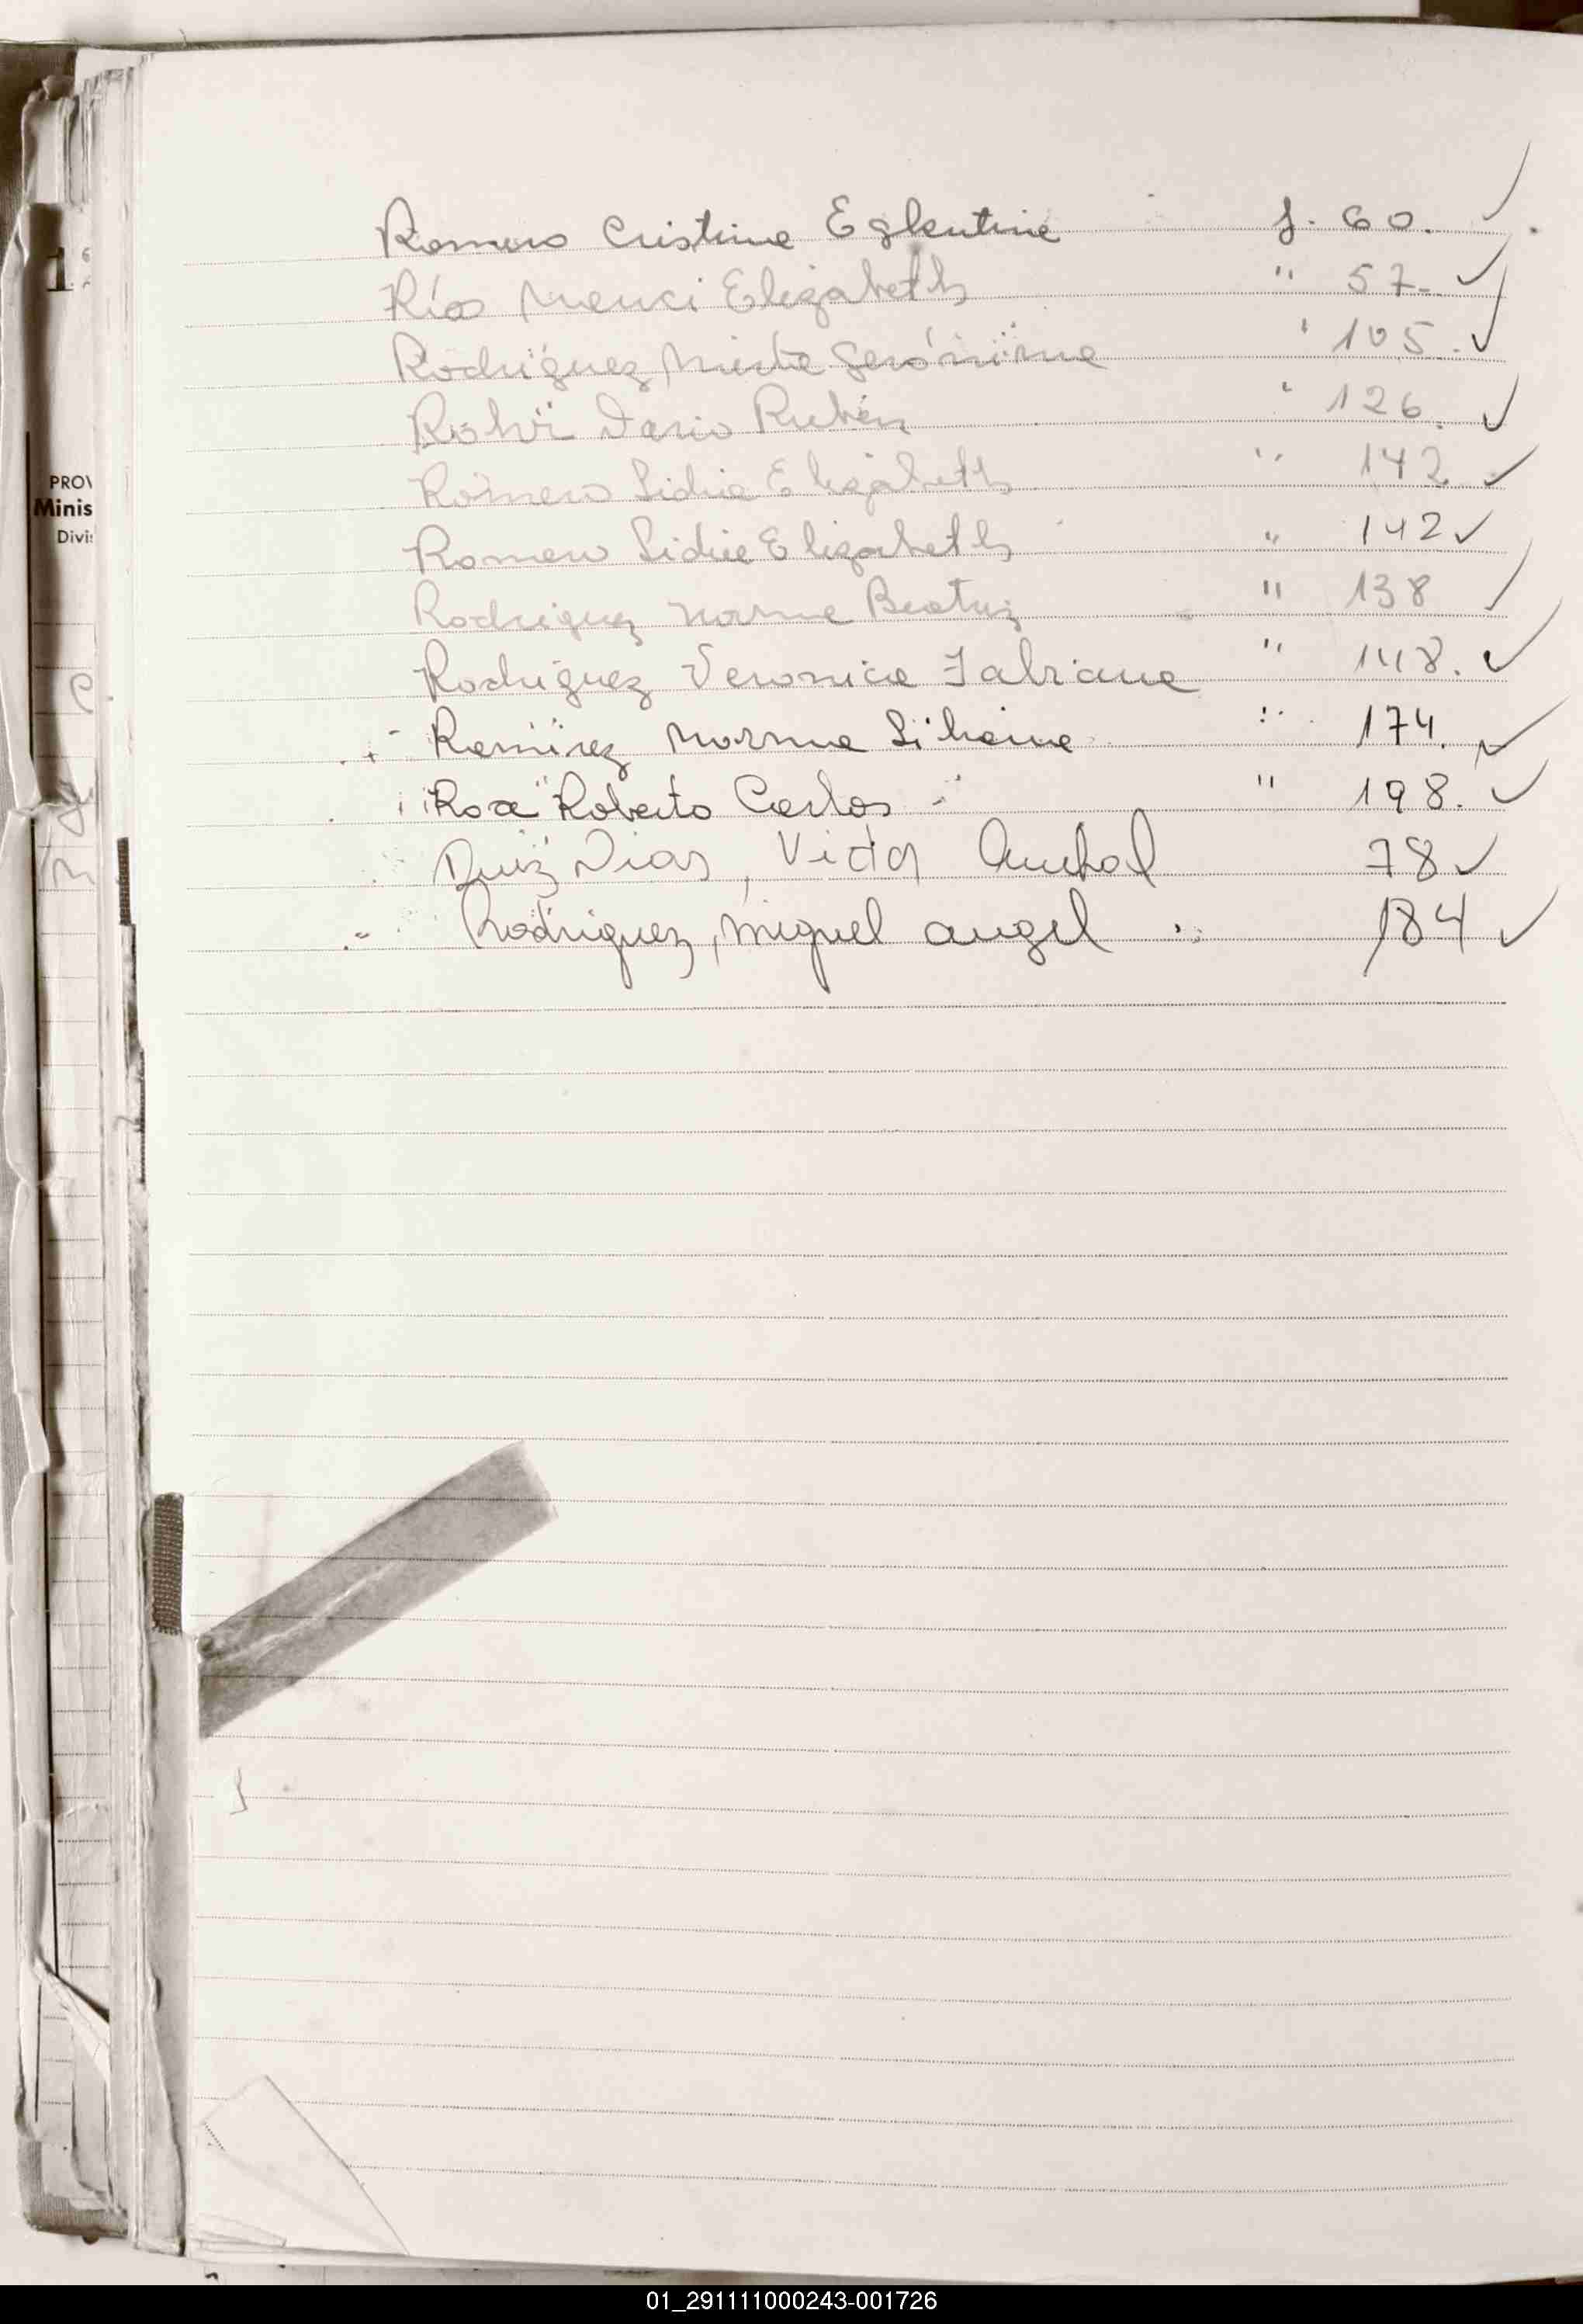 Romero Cristina Eglentina f. 60.
Ríos Nenci Elizabeth " 57-
Rodriguez, Mirta Gerónima " 105.
Rohr Dario Rubén " 126.
Romero Lidia Elizabeth " 142
Romero Lidia Elizabeth " 142
Rodriguez Norma Beatriz " 138
Rodriguez Veronica Fabiana " 148.
Ramirez Norma Liliana " 174.
Roberto Carlos " 198.
Ruiz Dias, Victor 78
Rodriguez, Miguel angel 184
PROV
Minis
Divi
01_291111000243-001726